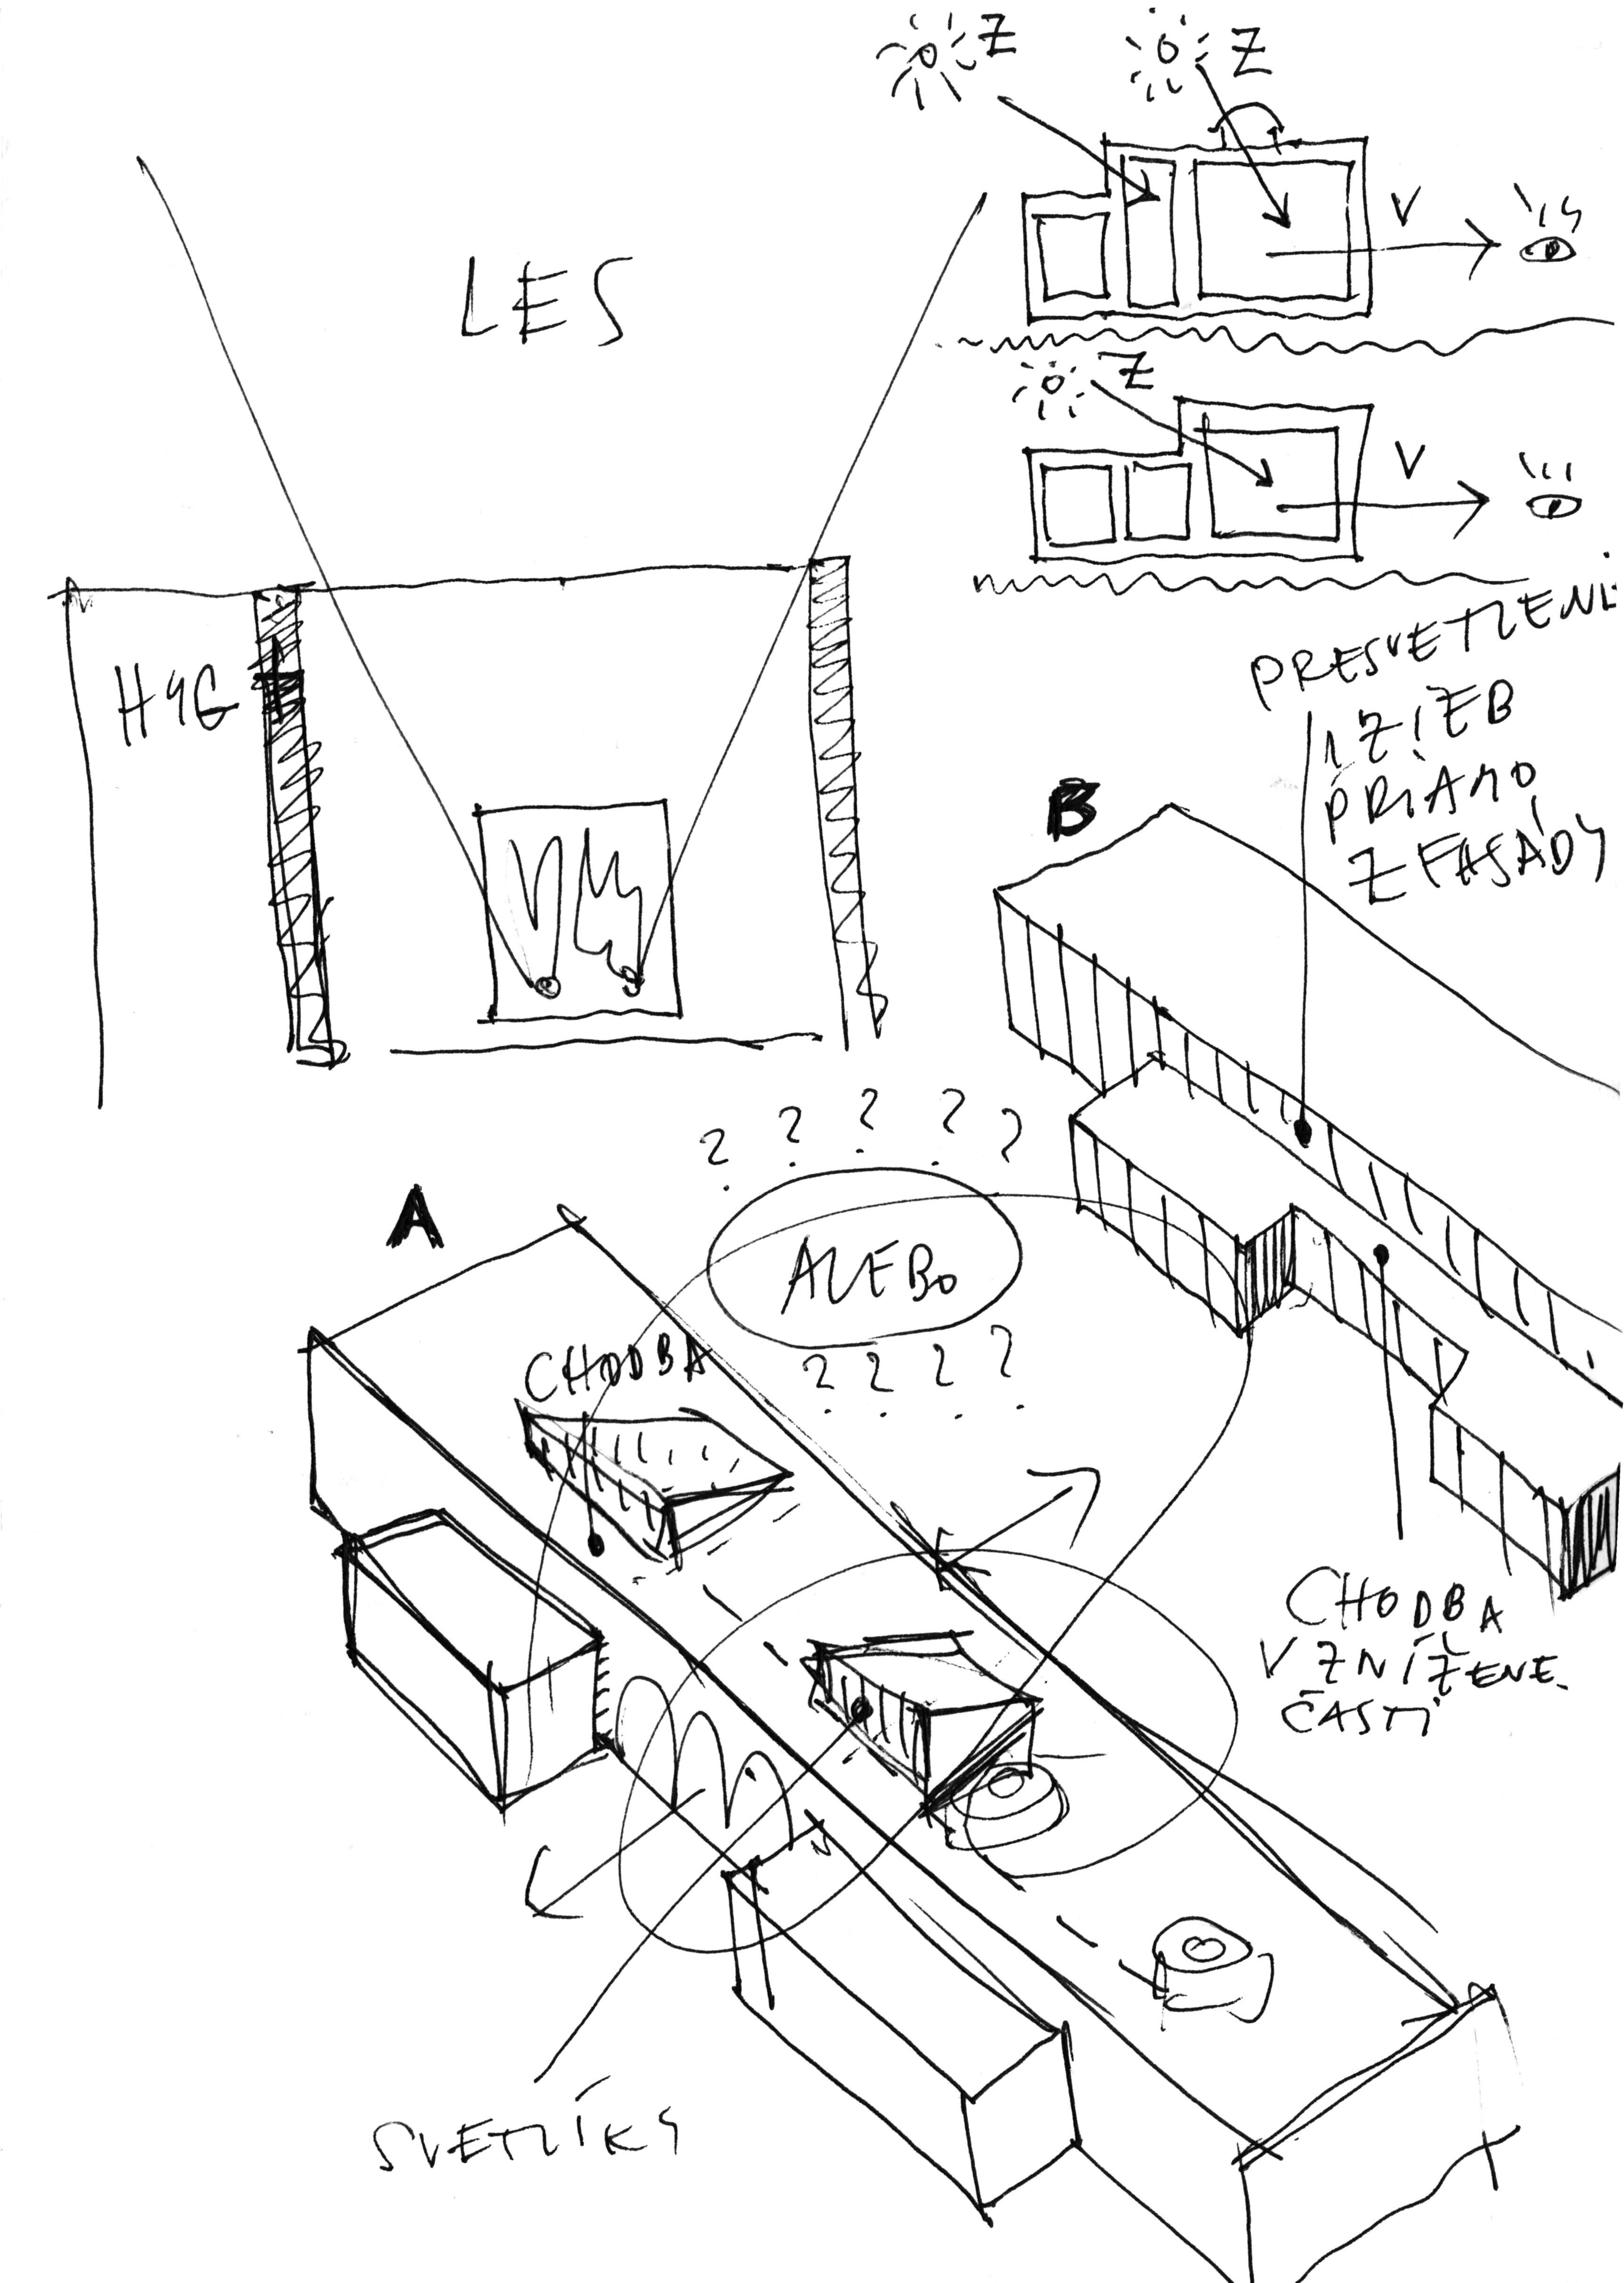 Z
Z
V
LES
Z
V
HYG
PRESVETLENI
IZIEB
PRIAMO
Z FASÁDY
B
? ? ? ? ?
A
ALEBO
CHODBA
? ? ? ?
CHODBA
V ZNÍŽENE
ČASTI
SVETLÍKY